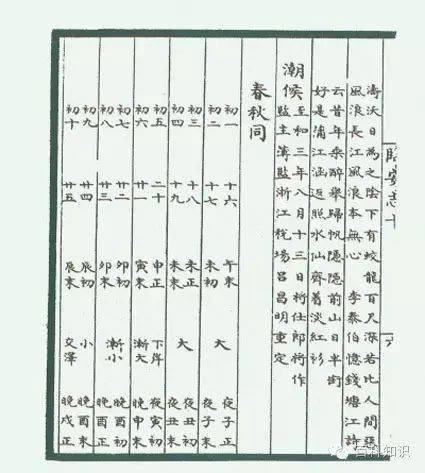 臨安志十
濤沃日為之陰下有蛟龍百尺深若比人間張
風浪長江風浪本無心 李泰伯憶錢塘江詩
云昔年乘醉舉歸帆隱隱前山日半銜
好是滿江涵返照水仙齊着淡紅衫
潮候 至和三年八月十三日將仕郎將作
監主簿監浙江稅場呂昌明重定
春秋同
初一 十六 午末 大 夜子正
初二 十七 未初 夜子末
初三 十八 未正 大 夜丑初
初四 十九 未末 夜丑末
初五 二十 申正 下岸 夜寅初
初六 廿一 寅末 漸大 晚申末
初七 廿二 卯初 漸小 晚酉初
初八 廿三 卯末 晚酉正
初九 廿四 辰初 小 晚酉末
初十 廿五 辰末 交澤 晚戌正
百科知识